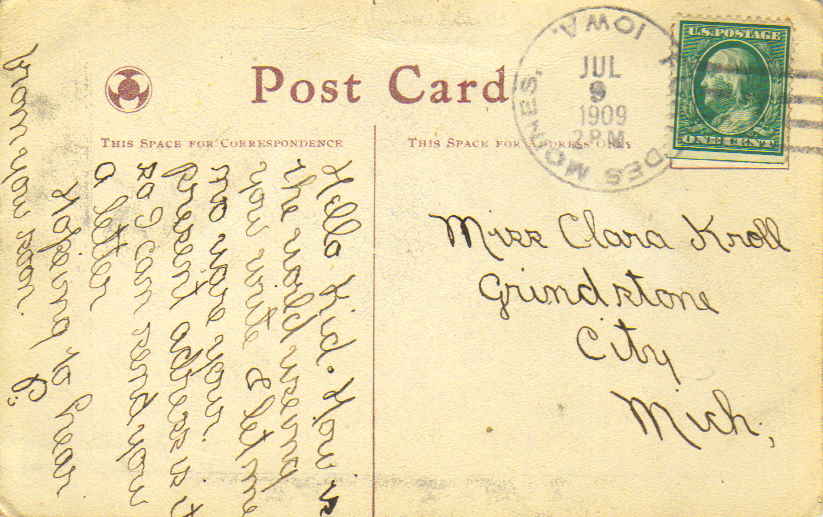 Post Card
THIS SPACE FOR CORRESPONDENCE
THIS SPACE FOR ADDRESS ONLY
DES MOINES, IOWA.
JUL
9
1909
2 PM
U.S. POSTAGE
ONE CENT
Hello Kid. How is
the world useing
you write & let me
no ware your
present address is
so I can send you
a letter
Hopeing to hear
from you soon.
Miss Clara Kroll
Grindstone
City
Mich,